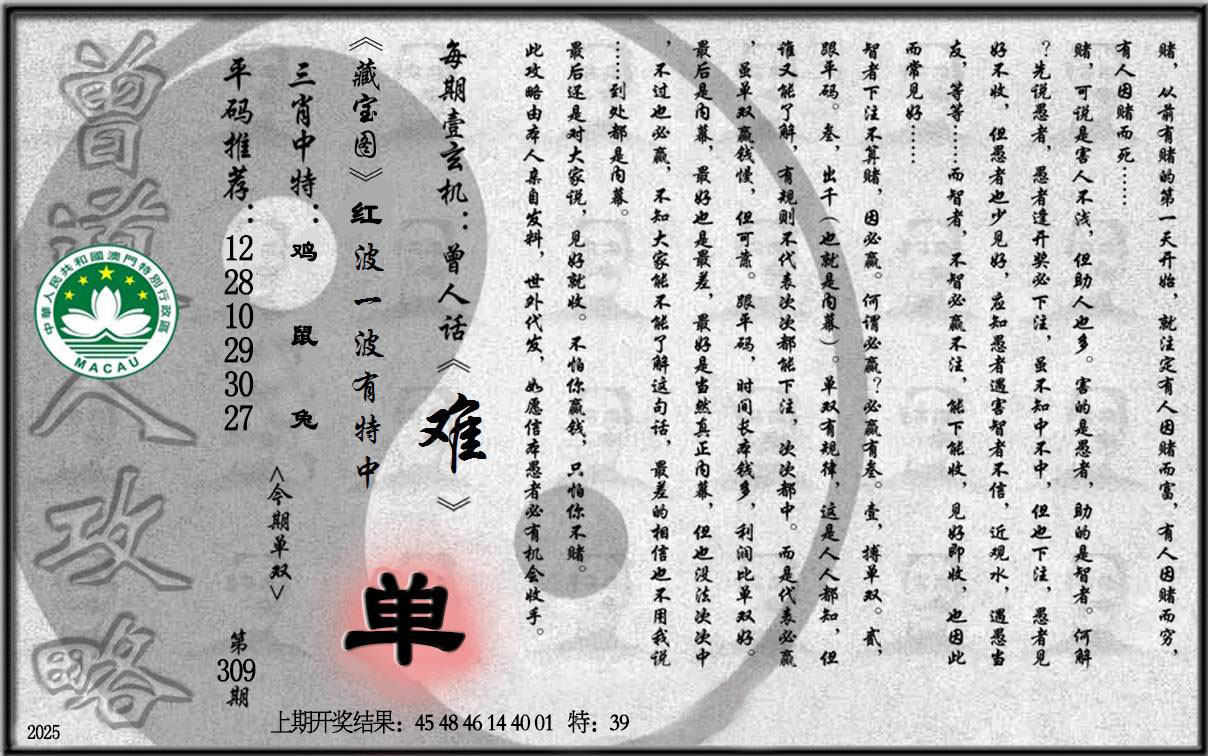 赌，从前有赌的第一天开始，就注定有人因赌而富，有人因赌而穷，
有人因赌而死……
赌，可说是害人不浅，但助人也多。害的是愚者，助的是智者。何解
？先说愚者，愚者逢开奖必下注，虽不知中不中，但也下注，愚者见
好不收，但愚者也少见好，应知愚者遇害智者不信，近观水，遇愚当
友，等等……而智者，不智必赢不注，能下能收，见好即收，也因此
而常见好……
智者下注不算赌，因必赢。何谓必赢？必赢有叁。壹，搏单双。贰，
跟平码。叁，出千（也就是内幕）。单双有规律，这是人人都知，但
谁又能了解，有规则不代表次次都能下注，次次都中。而是代表必赢
，虽单双赢钱慢，但可靠。跟平码，时间长本钱多，利润比单双好。
最后是内幕，最好也是最差，最好是当然真正内幕，但也没法次次中
，不过也必赢，不知大家能不能了解这句话，最差的相信也不用我说
……到处都是内幕。
最后还是对大家说，见好就收。不怕你赢钱，只怕你不赌。
此攻略由本人亲自发料，世外代发，如愿信本愚者必有机会收手。
每期壹玄机：曾人话《难》
《藏宝图》红波一波有特中
单
三肖中特：鸡 鼠 兔
<今期单双>
平码推荐：12 28 10 29 30 27
第309期
曾道人攻略
中華人民共和國澳門特別行政區
MACAU
上期开奖结果：45 48 46 14 40 01 特：39
2025